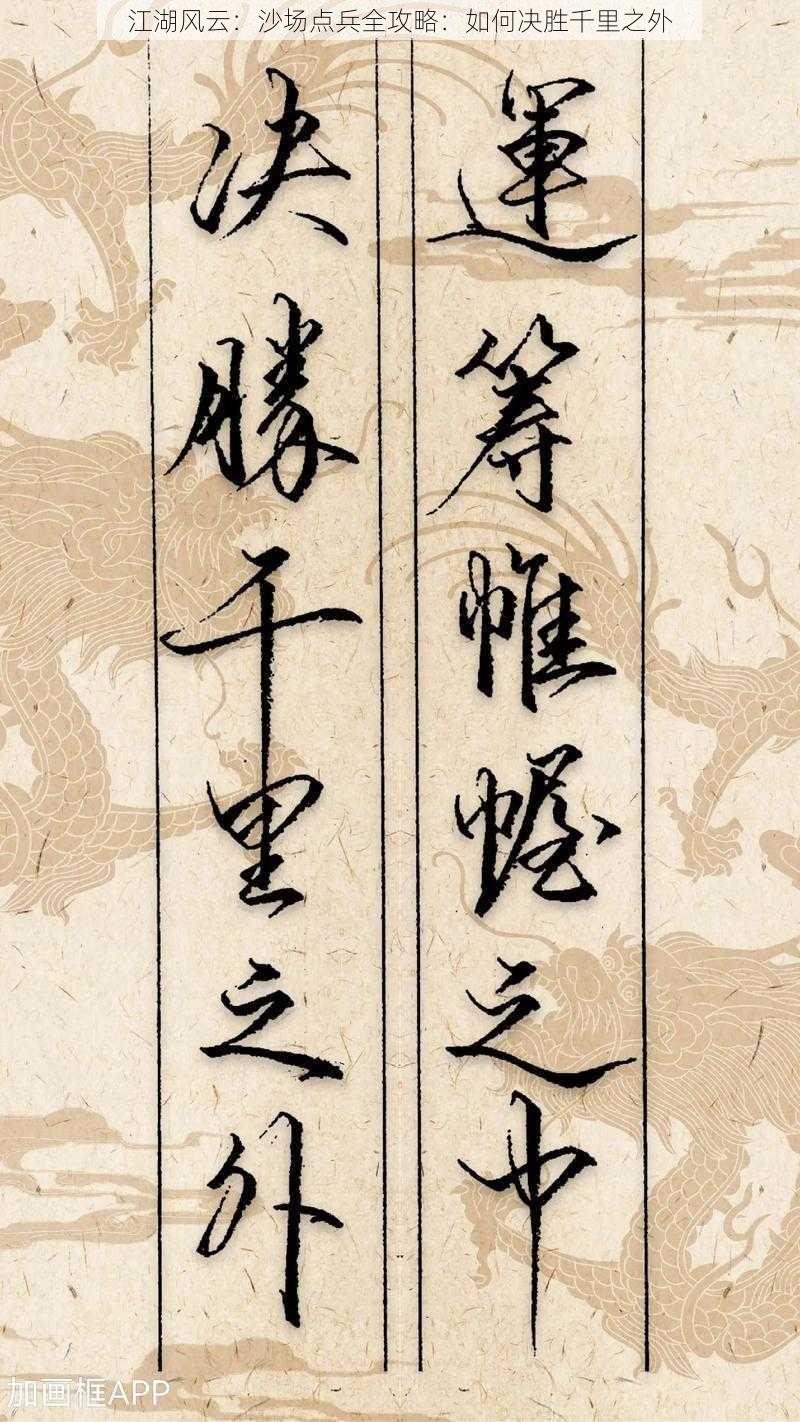 江湖风云：沙场点兵全攻略：如何决胜千里之外
運筹帷幄之中
决勝千里之外
加画框APP